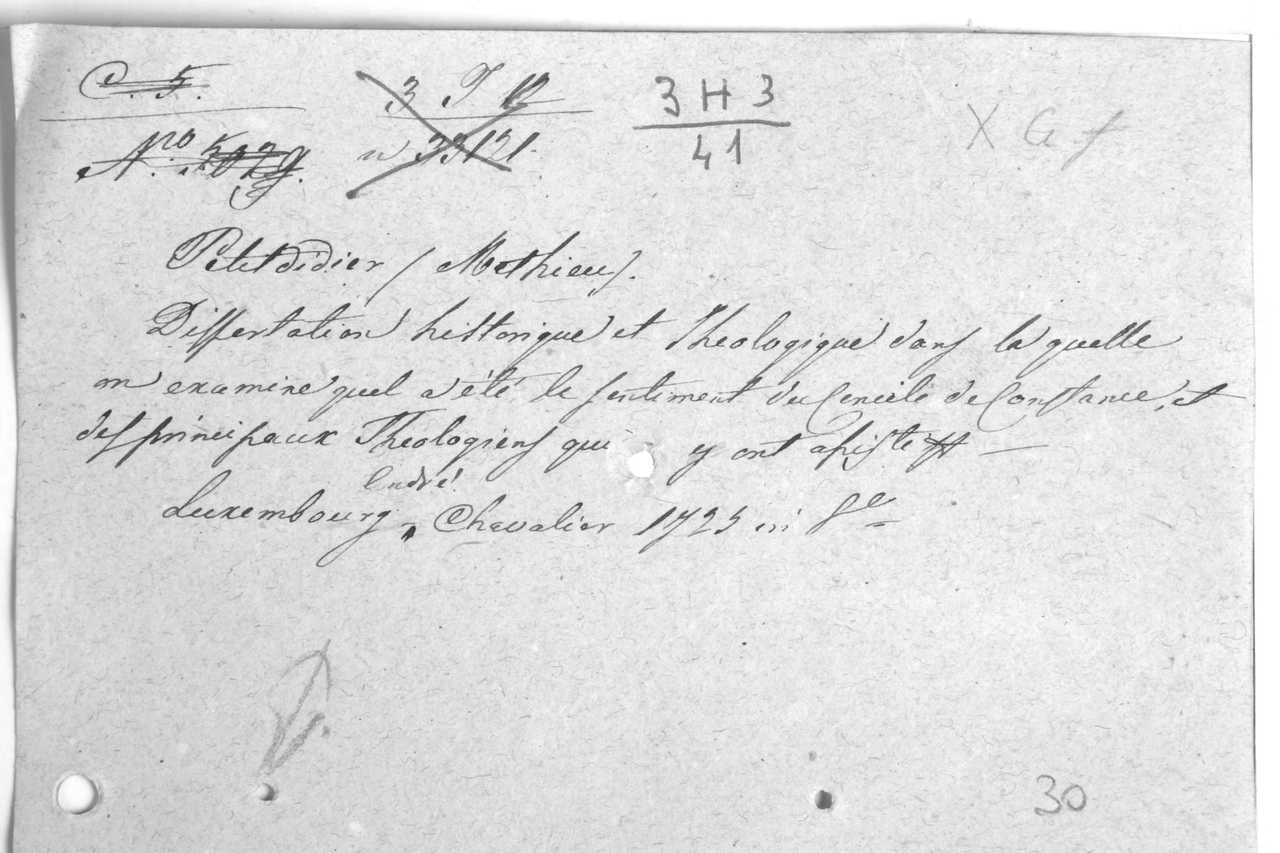 C. 5.
3 T 12
3 H 3
X G f
N.ro 5029.
n 33121.
41
Petitdidier (Mathieu).
Dissertation historique et Theologique dans la quelle
on examine quel a été le sentiment du Concile de Constance, et
des principaux Theologiens qui y ont assisté —
André
Luxembourg, Chevalier 1725 in 8º
30